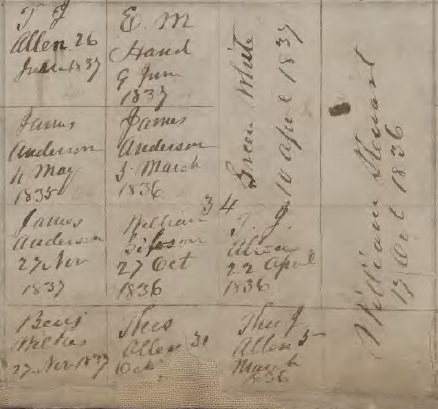 T. J.
Allen 26
June 1837
E. M
Hand
9 Jun
1837
Green White
10 April 1837
William Stewart
17 Oct 1836
James
Anderson
4 May
1835
James
Anderson
5 March
1836
34
James
Anderson
27 Nov
1837
William
27 Oct
1836
T. J.
Allen
22 April
1836
Benj
Wilkes
27 Nov 1837
Thos
Allen 31
Oct
Thos J
Allen 5
March
1836